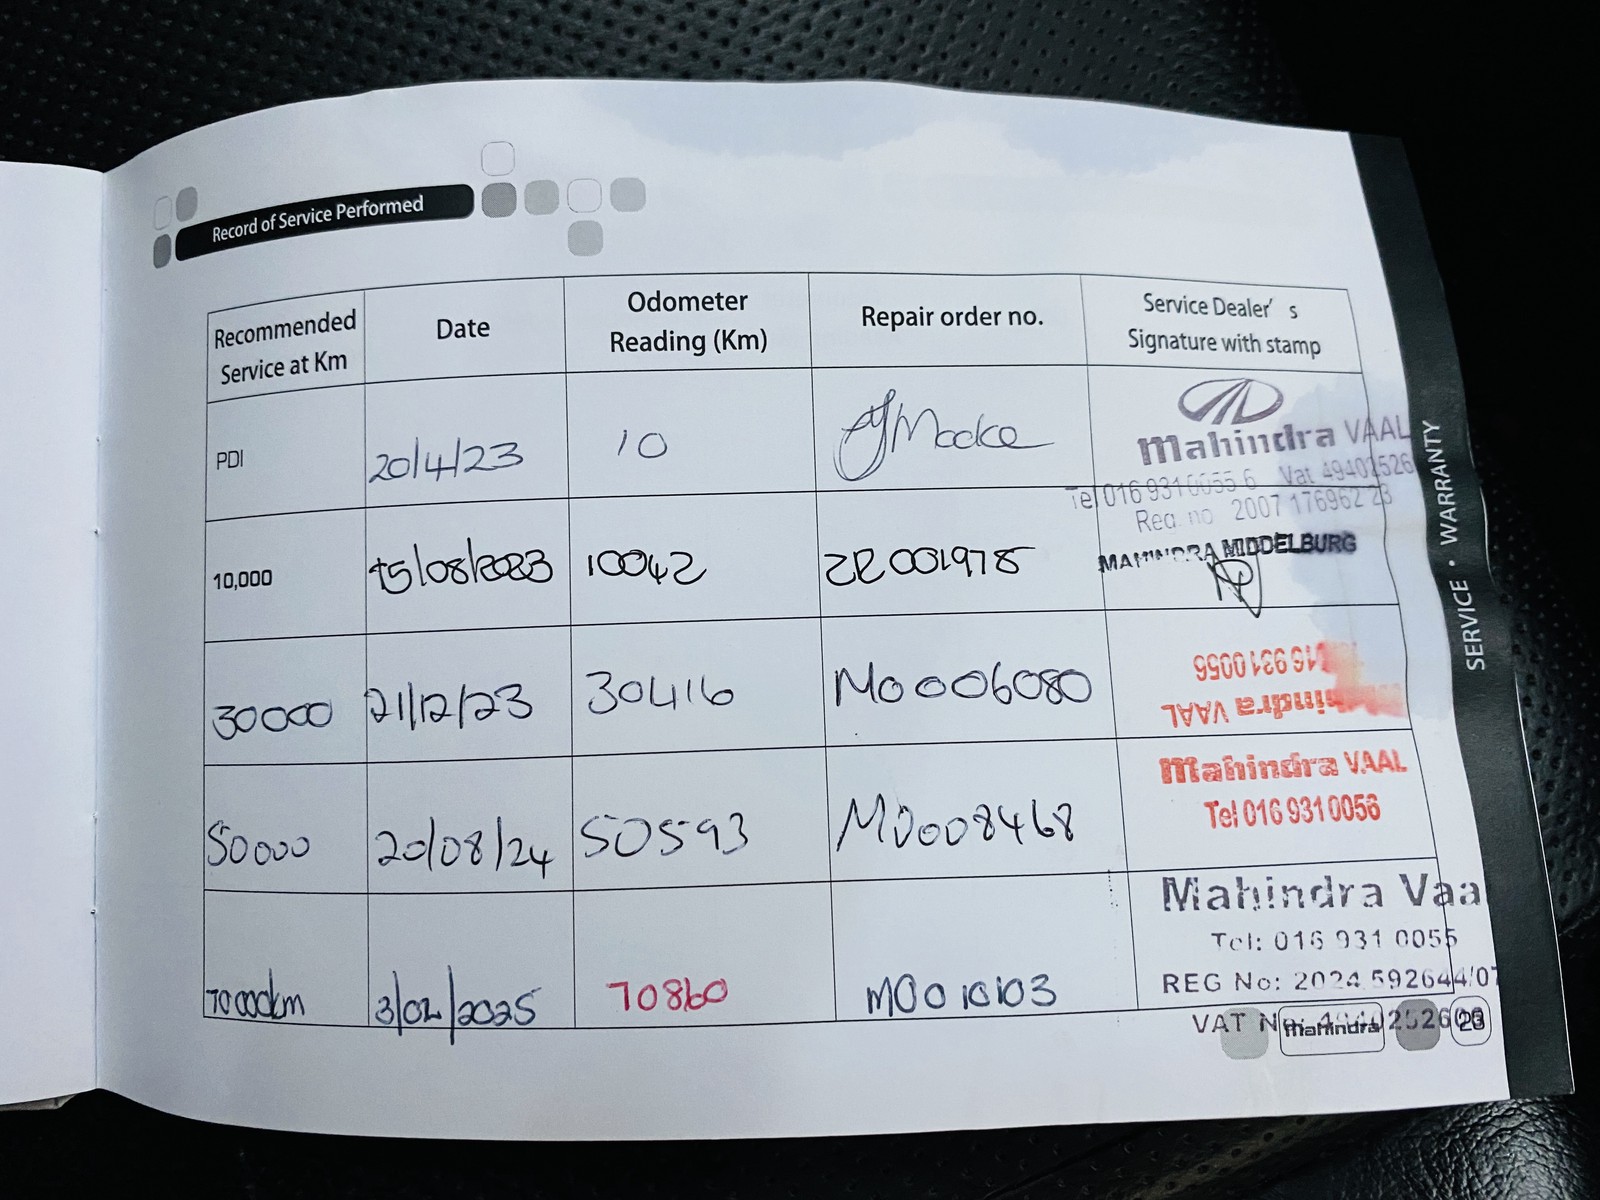 Record of Service Performed
Recommended Service at Km
Date
Odometer Reading (Km)
Repair order no.
Service Dealer's Signature with stamp
PDI
20/4/23
10
mahindra VAAL
Tel 016 931 0055 6 Vat 49402526
Reg. no 2007 176962 23
10,000
15/08/2023
10042
MAHINDRA MIDDELBURG
30000
21/12/23
30416
M00006080
016 931 0056
mahindra VAAL
50000
20/08/24
50593
M0008468
mahindra VAAL
Tel 016 931 0056
70000km
3/02/2025
70860
M0010103
Mahindra Vaa
Tel: 016 931 0055
REG No: 2024 592644/07
VAT No: 4940252600
mahindra
23
SERVICE • WARRANTY